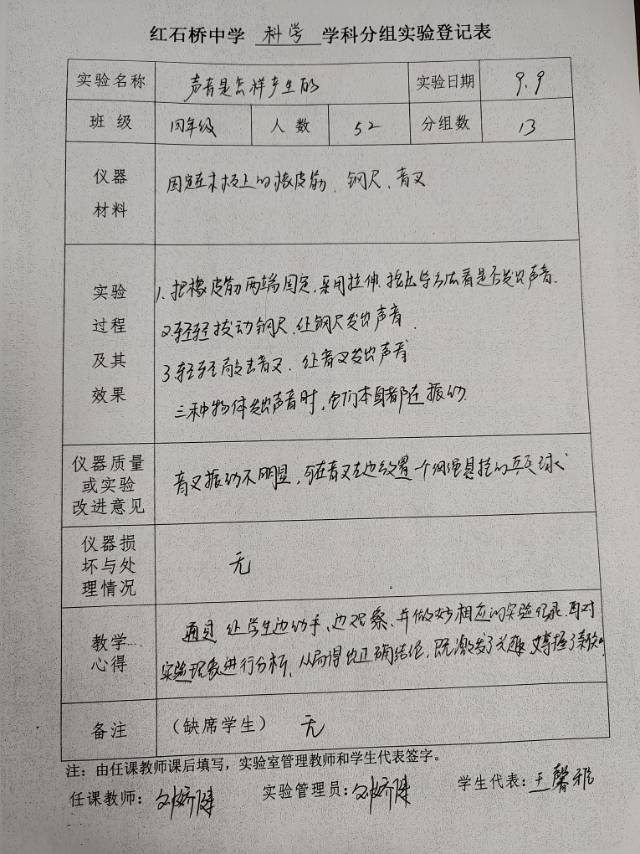 红石桥中学 科学 学科分组实验登记表
实验名称 声音是怎样产生的 实验日期 9.9
班级 四年级 人数 52 分组数 13
仪器材料 固定在木板上的橡皮筋、钢尺、音叉
实验过程及其效果
1.把橡皮筋两端固定.采用拉伸.按压等方法看是否发出声音.
2.轻轻拨动钢尺.让钢尺发出声音.
3.轻轻敲击音叉.让音叉发出声音
三种物体发出声音时,它们本身都在振动.
仪器质量或实验改进意见 音叉振动不明显,可在音叉左边放置一个细绳悬挂的乒乓球
仪器损坏与处理情况 无
教学心得 通过让学生边动手、边观察、并做好相应的实验记录.再对
实验现象进行分析,从而得出正确结论.既激发了兴趣,又掌握了
备注 (缺席学生) 无
注:由任课教师课后填写,实验室管理教师和学生代表签字。
任课教师: 实验管理员: 学生代表:王馨雅